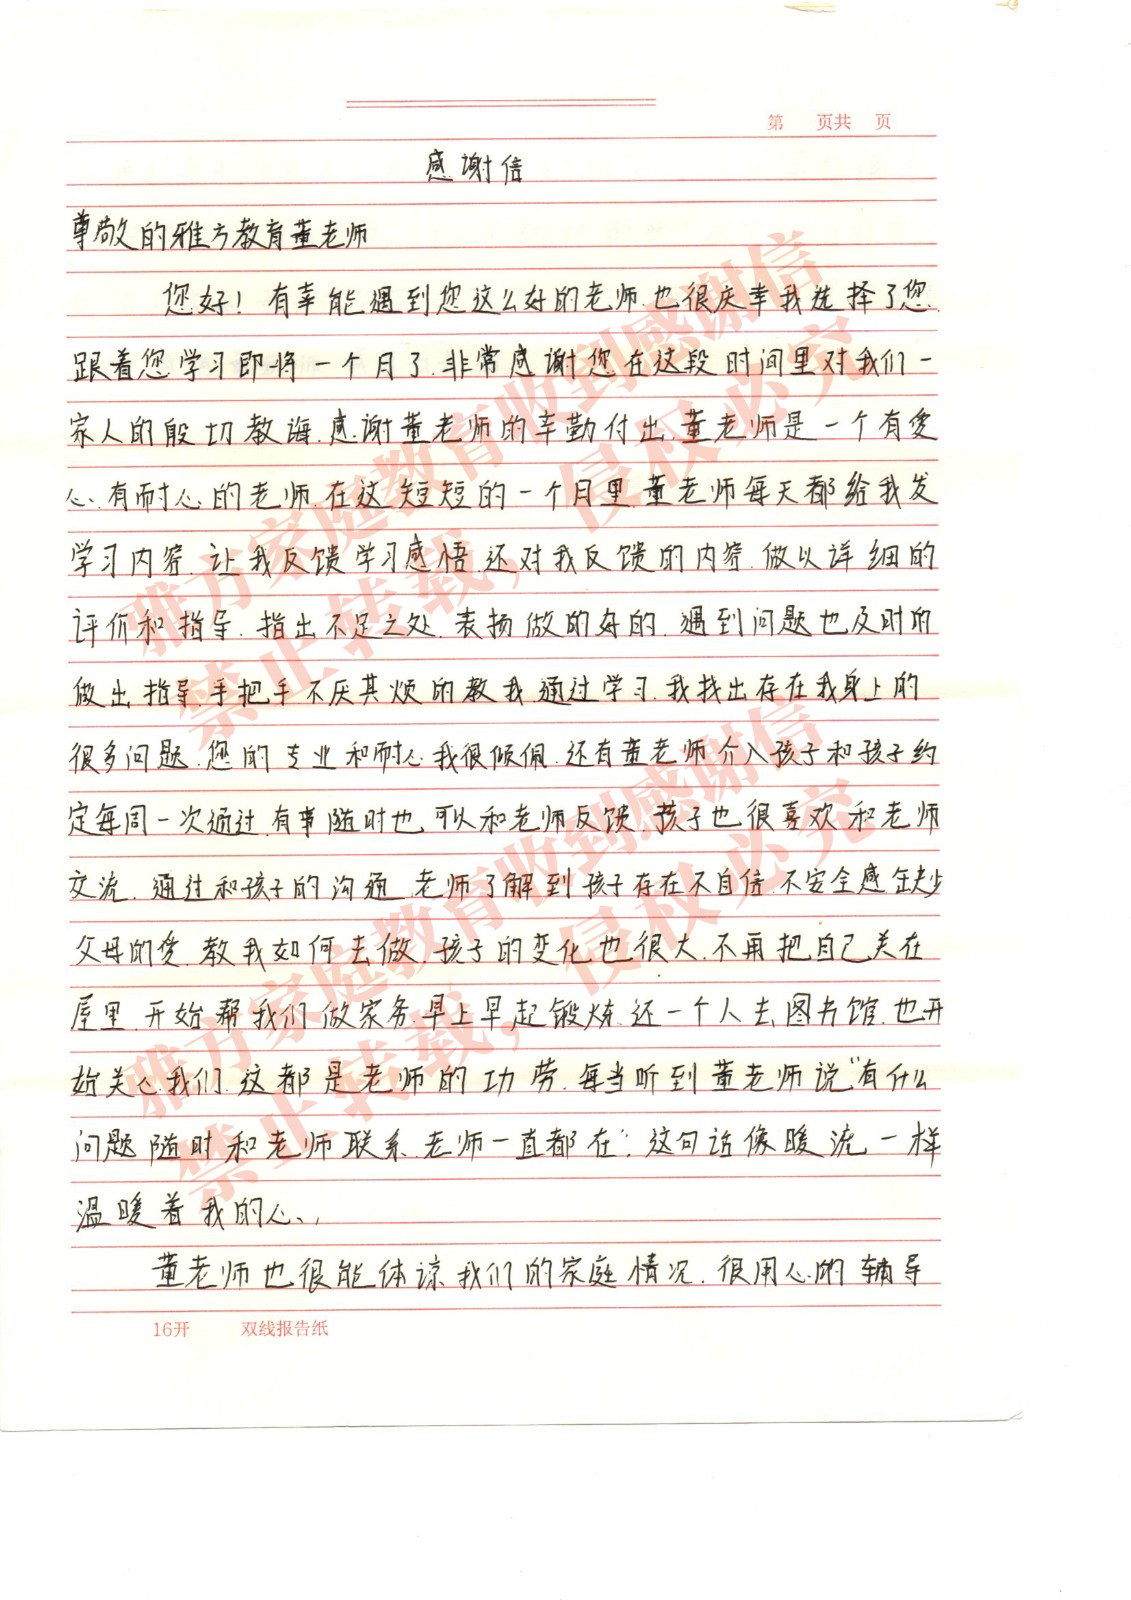 第 页共 页
感谢信
尊敬的雅方教育董老师
您好！有幸能遇到您这么好的老师.也很庆幸我选择了您.
跟着您学习即将一个月了.非常感谢您在这段时间里对我们一
家人的殷切教诲.感谢董老师的辛勤付出.董老师是一个有爱
心.有耐心的老师.在这短短的一个月里.董老师每天都给我发
学习内容.让我反馈学习感悟.还对我反馈的内容.做以详细的
评价和指导.指出不足之处.表扬做的好的.遇到问题也及时的
做出指导.手把手不厌其烦的教我.通过学习.我找出存在我身上的
很多问题.您的专业和耐心.我很倾佩.还有董老师介入孩子和孩子约
定每周一次通过.有事随时也可以和老师反馈.孩子也很喜欢和老师
交流.通过和孩子的沟通.老师了解到孩子存在不自信.不安全感.缺少
父母的爱.教我如何去做.孩子的变化也很大.不再把自己关在
屋里.开始帮我们做家务.早上早起锻炼.还一个人去图书馆.也开
始关心我们.这都是老师的功劳.每当听到董老师说“有什么
问题随时和老师联系.老师一直都在”.这句话像暖流一样
温暖着我的心、,
董老师也很能体谅我们的家庭情况.很用心的辅导
16开 双线报告纸
雅方家庭教育收到感谢信
禁止转载，侵权必究
雅方家庭教育收到感谢信
禁止转载，侵权必究